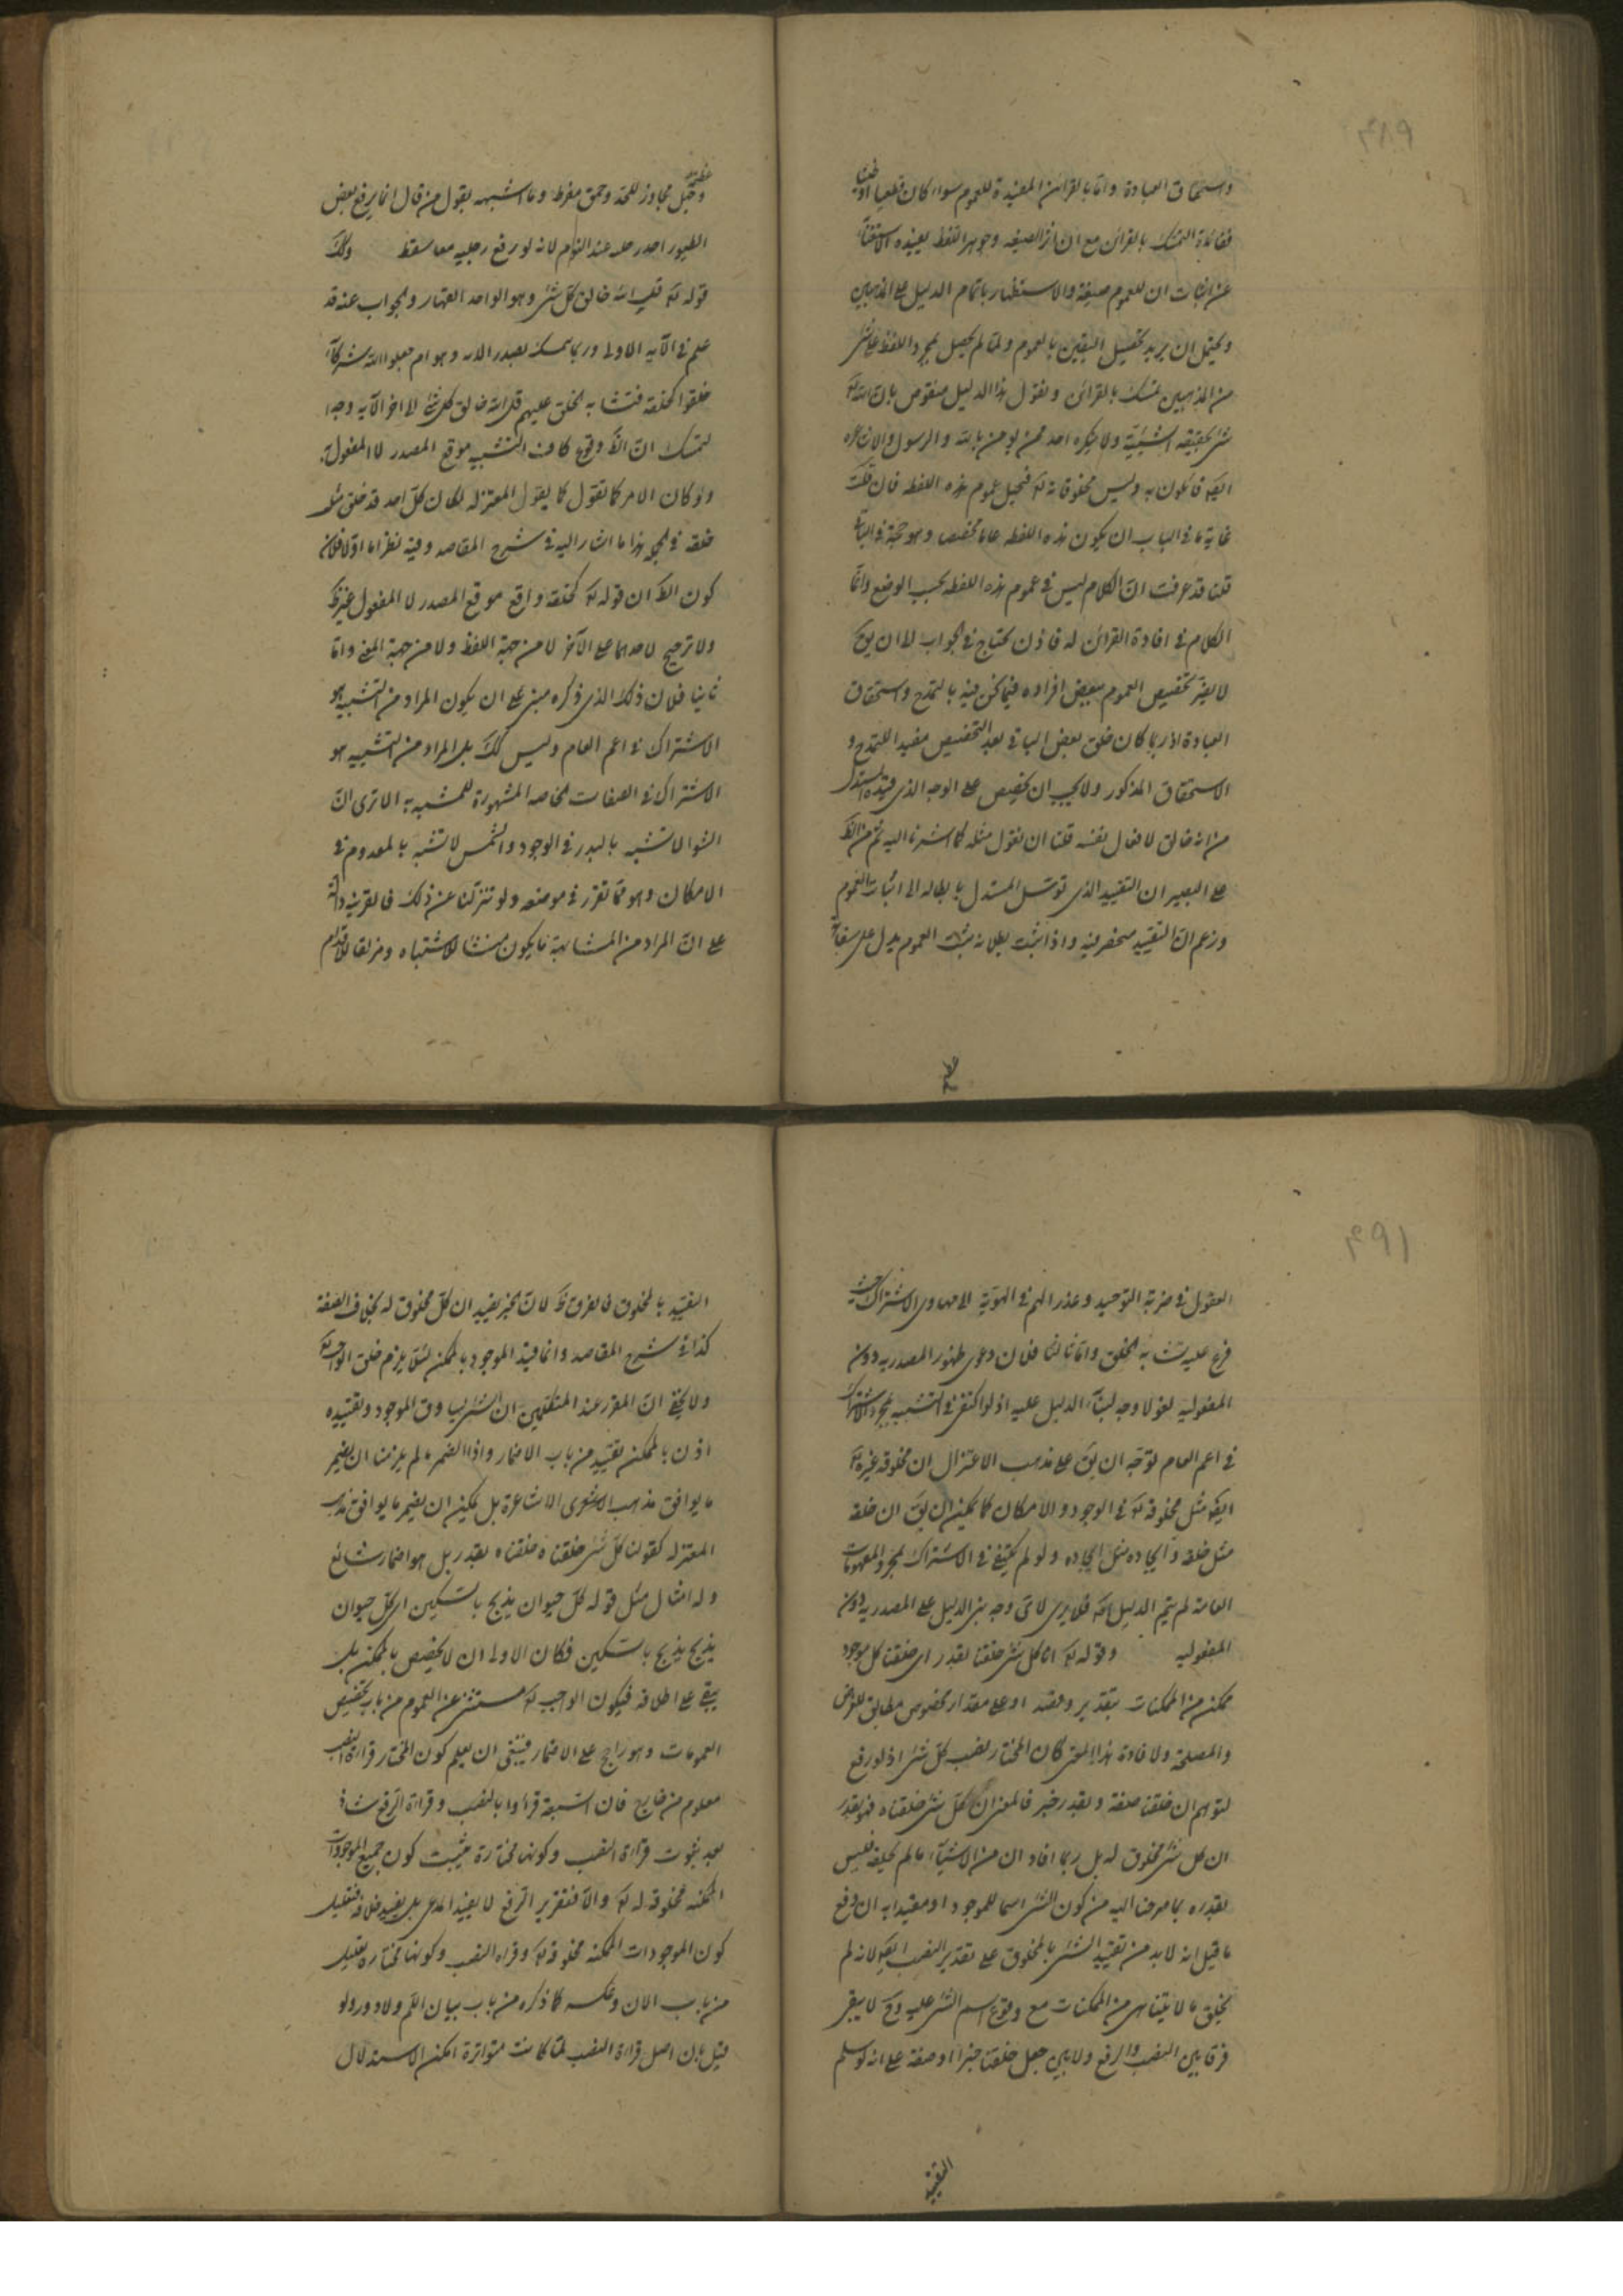 ۴۸۹
واستحقاق العبادة واما بالقرائن المفيدة للعموم سواء كان قطعيا او ظنيا
ففائدة التمسك بالقرائن مع ان اثر الصيغة وجوهر اللفظ يفيده الاستغناء
عن اثبات ان للعموم صيغة والاستظهار باتمام الدليل على المذهبين
ويحتمل ان يريد تحصيل اليقين بالعموم ولما لم يحصل بمجرد اللفظ على شئ
من المذهبين تمسك بالقرائن ونقول هذا الدليل منقوض بان الله تع
شئ بحقيقة الشيئية ولا ينكره احد ممن يؤمن بالله والرسول
ايضا قائلون به وليس مخلوقا له تع فيحيل عموم هذه اللفظه فان قلت
غاية ما فى الباب ان يكون هذه اللفظه عاما مخصصا وهو حجة فى الباقى
قلنا قد عرفت ان الكلام ليس فى عموم هذه اللفظه بحسب الوضع وانما
الكلام فى افادة القرائن له فاذن يحتاج فى الجواب الى ان يق
لا يضر تخصيص العموم ببعض افراده فيما نحن فيه بالتمدح واستحقاق
العبادة اذ ربما كان خلق بعض الباقى بعد التخصيص مفيدا للتمدح و
الاستحقاق المذكور ولا يجب ان يخصص على الوجه الذى قيده المستدل
من انه خالق لافعال نفسه قلنا ان نقول مثله كما اشرنا اليه ثم من الظ
على البصير ان التقييد الذى توسل المستدل بابطاله الى اثبات العموم
وزعم ان التقييد منحصر فيه واذا ثبت بطلانه يثبت العموم يدل على سفاهة
عظيمة
وجهل مجاوز للحد وحمق مفرط وما اشبهه بقول من قال انما يرفع بعض
الطيور احد رجليه عند النوم لانه لو رفع رجليه معا سقط وكك
قوله تع قل الله خالق كل شئ وهو الواحد القهار والجواب عنه قد
علم فى الآيه الاولى وربما يتمسك بصدر الايه وهو ام جعلوا لله شركاء
خلقوا كخلقه فتشابه الخلق عليهم قل الله خالق كل شئ الى اخر الآيه وجه
التمسك ان الظ وقوع كاف التشبيه موقع المصدر لا المفعول به
ولو كان الامر كما تقول كما يقول المعتزله لكان كل احد قد خلق مثل
خلقه فى الجمله هذا ما اشار اليه فى شرح المقاصد وفيه نظر اما اولا فلان
كون الظ ان قوله تع كخلقه واقع موقع المصدر لا المفعول غير ظ
ولا ترجيح لاحدهما على الآخر لا من جهة اللفظ ولا من جهة المعنى واما
ثانيا فلان ذلك الذى ذكره مبنى على ان يكون المراد من التشبيه هو
الاشتراك فى اعم العام وليس كك بل المراد من التشبيه هو
الاشتراك فى الصفات الخاصه المشهورة للمشبه به الا ترى ان
لا تشبه بالبدر فى الوجود والشمس لا تشبه بالمعدوم فى
الامكان وهو مما تقرر فى موضعه ولو تنزلنا عن ذلك فالقرينه دالة
على ان المراد من المشابهة ما يكون منشأ للاشتباه ومزلقا لاقدام
۴۹۱
العقول فى مرتبة التوحيد الى مهاوى الاشراك حيث
فرع عليه تشابه الخلق واما ثالثا فلان دعوى ظهور المصدريه دون
المفعوليه لغو لا وجه لبناء الدليل عليه اذ لو اكتفى فى التشبيه بمجرد الاشتراك
فى اعم العام لتوجه ان يق على مذهب الاعتزال ان مخلوقه غيره تع
ايضا مثل مخلوقه تع فى الوجود والامكان كما يمكن ان يق ان خلقه
مثل خلقه وايجاده مثل ايجاده ولو لم يكتف فى الاشتراك بمجرد المفهومات
العامة لم يتم الدليل ايضا فلا يرى لاى وجه بنى الدليل على المصدريه دون
المفعوليه وقوله تع انا كل شئ خلقنا بقدر اى خلقنا كل موجود
ممكن من الممكنات بتقدير وقصد او على مقدار مخصوص مطابق للغرض
والمصلحة ولافادة هذا المعنى كان المختار نصب كل شئ اذ لو رفع
لتوهم ان خلقنا صفة وبقدر خبر فالمعنى ان كل شئ خلقناه فهو بقدر
ان كل شئ مخلوق له بل ربما افاد ان من الاشياء ما لم يخلقه فليس
بقدره بما صرفنا اليه من كون الشئ اسما للموجود او مقيدا به اندفع
ما قيل انه لا بد من تقييد الشئ بالمخلوق على تقدير النصب ايضا لانه لم
يخلق ما لا يتناهى من الممكنات مع وقوع اسم الشئ عليه وح لا يبقى
فرق بين النصب والرفع ولا بين جعل خلقنا خبرا او صفة على انه لو سلم
التقييد
التقييد بالمخلوق فالفرق ظ لان الخبر يفيد ان كل مخلوق له بخلاف الصفة
كذا فى شرح المقاصد وانما قيد الموجود بالممكن لئلا يلزم خلق الواجب تع
ولا يخفى ان المقرر عند المتكلمين ان الشئ يساوق الموجود وتقييده
اذن بالممكن تقييد من باب الاضمار واذا اضمر لم يلزمنا ان يضمر
ما يوافق مذهب الاشعرى الاشاعرة بل يمكن ان يضمر ما يوافق مذهب
المعتزله كقولنا كل شئ خلقناه خلقناه بقدر بل هو اضمار شائع
وله امثال مثل قوله كل حيوان يذبح بالسكين اى كل حيوان
يذبح يذبح بالسكين فكان الاولى ان لا يخصص بالممكن بل
يبقى على اطلاقه فيكون الواجب تع مستثنى عن العموم من باب تخصيص
العمومات وهو راجح على الاضمار فينبغى ان يعلم كون المختار قراءة النصب
معلوم من خارج فان السبعة قرأوا بالنصب وقراءة الرفع شاذة
بعد ثبوت قراءة النصب وكونها مختارة يثبت كون جميع الموجودات
الممكنه مخلوقة له تع والا فتقرير الرفع لا يفيد المدعى بل يفيد خلافه فتعليل
كون الموجودات الممكنه مخلوقة تع وقراه النصب وكونها مختاره تعليل
من باب الان وعكسه كما ذكره من باب بيان اللم ولا دور ولو
قيل بان اصل قراءة النصب لما كانت متواترة امكن الاستدلال